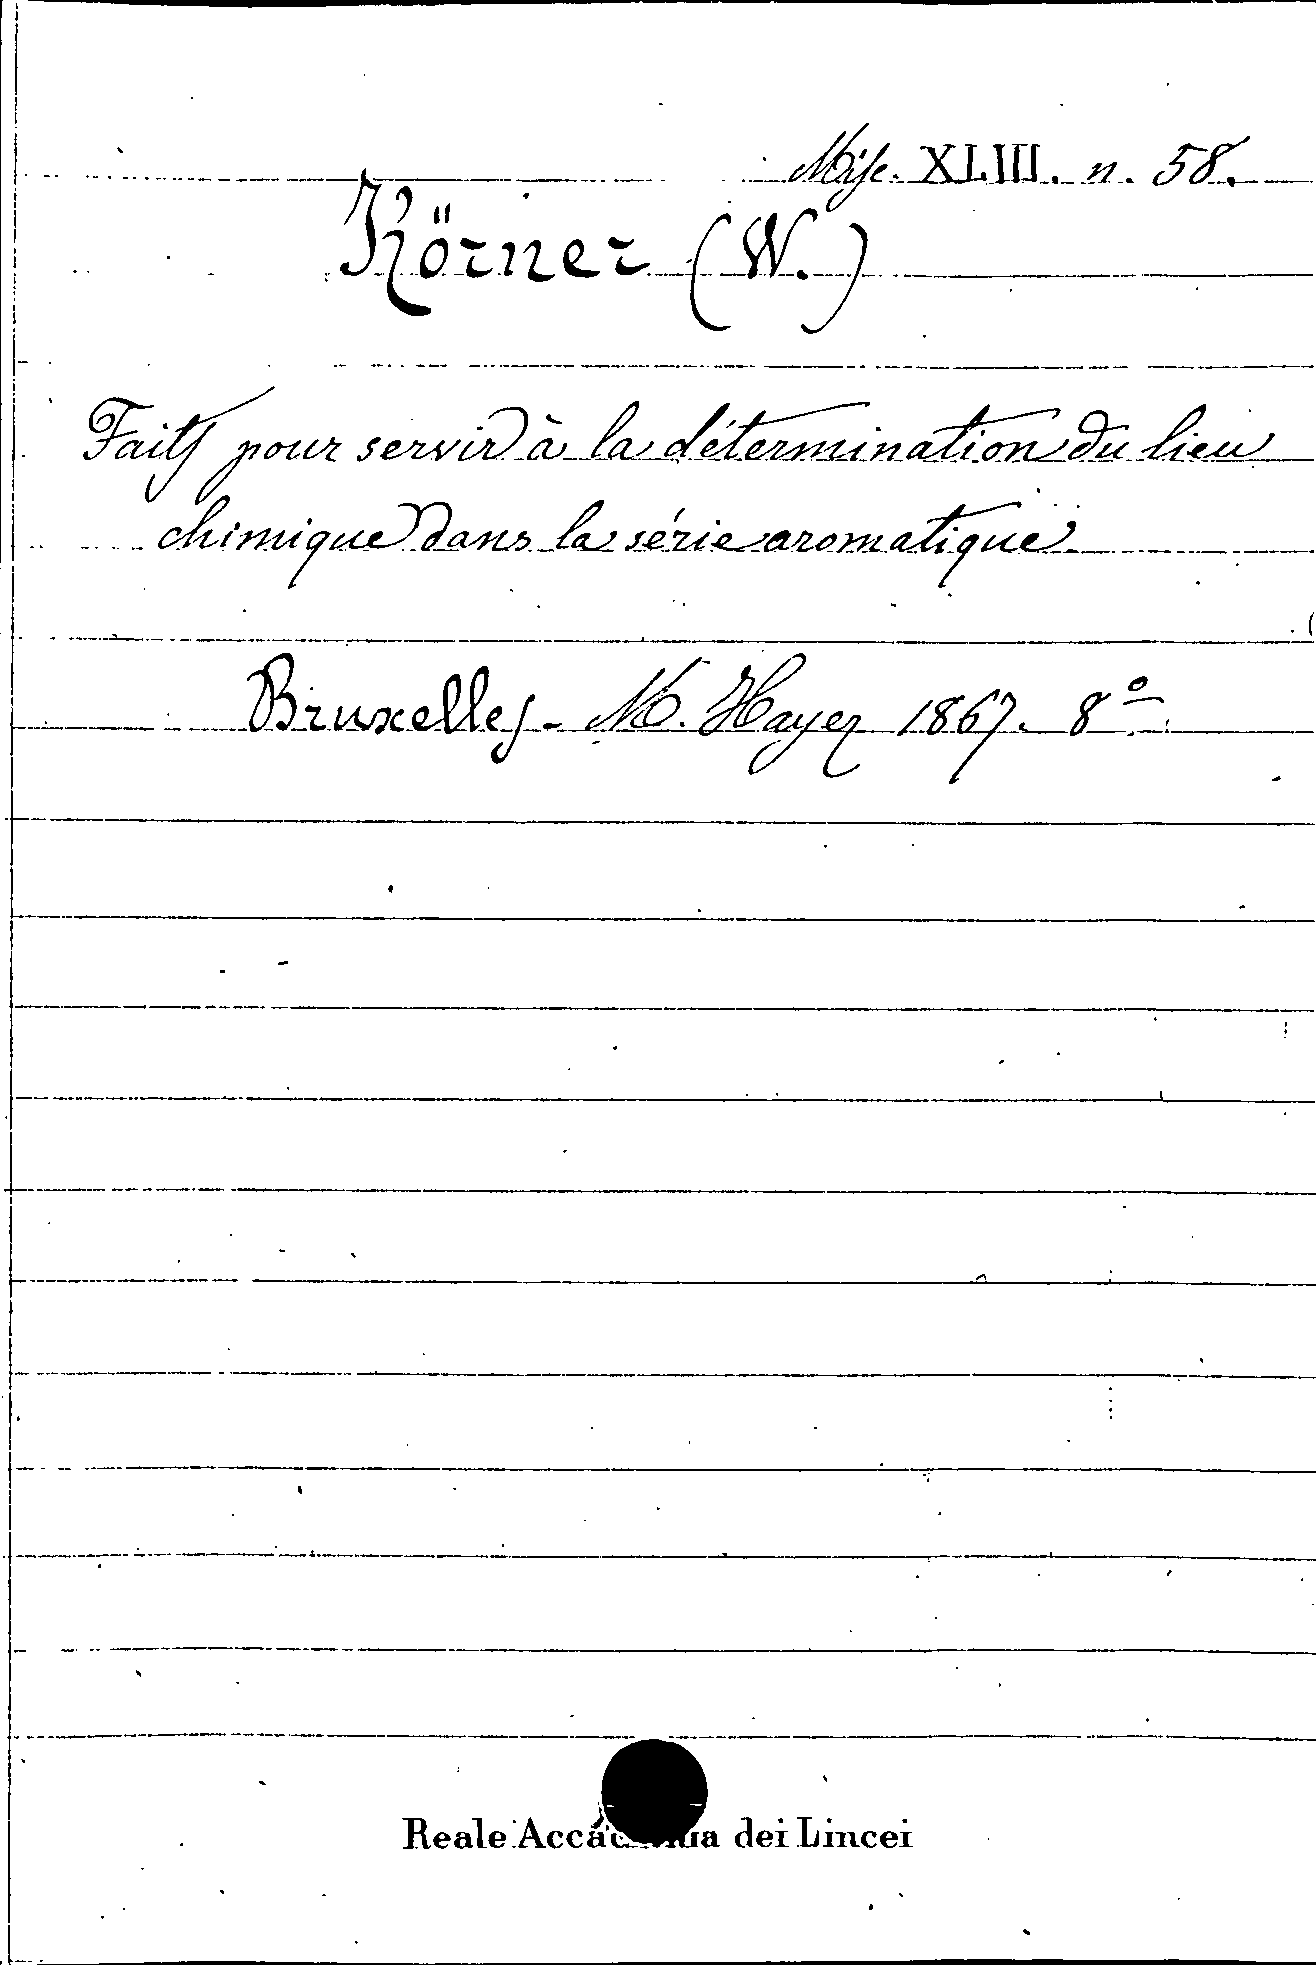 Misc. XLIII. n. 58.
Körner (W.)
Faits pour servir à la détermination du lieu
chimique dans la série aromatique.
Bruxelles - M. Hayez 1867. 8º
Reale Accademia dei Lincei